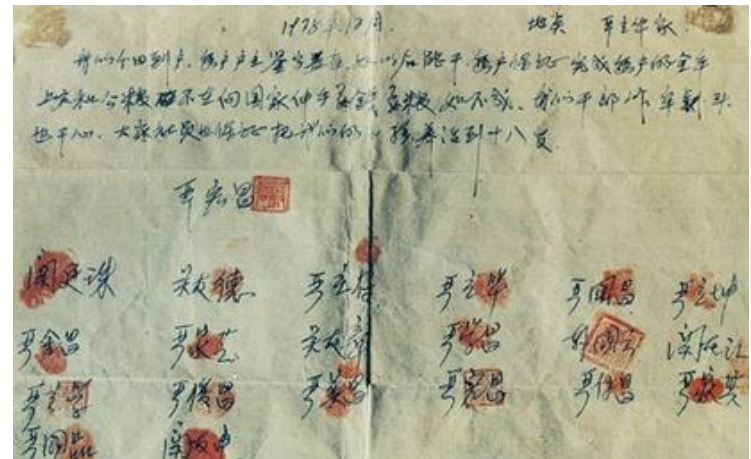 1978年12月. 地点 严立华家.
我们分田到户. 每户户主签字盖章. 如以后能干. 每户保证完成每户的全年
上交和公粮. 不在向国家伸手要钱要粮. 如不成. 我们干部作牢杀头
也干心. 大家社员也保证把我们的小孩养活到十八岁.
严宏昌
关友德 严立符 严立华 严国昌 严立坤
严金昌 严家芝 关友章 严学昌 韩国云 关友江
严立学 严俊昌 严美昌 严宏昌 严付昌 严家其
严国品 关友申